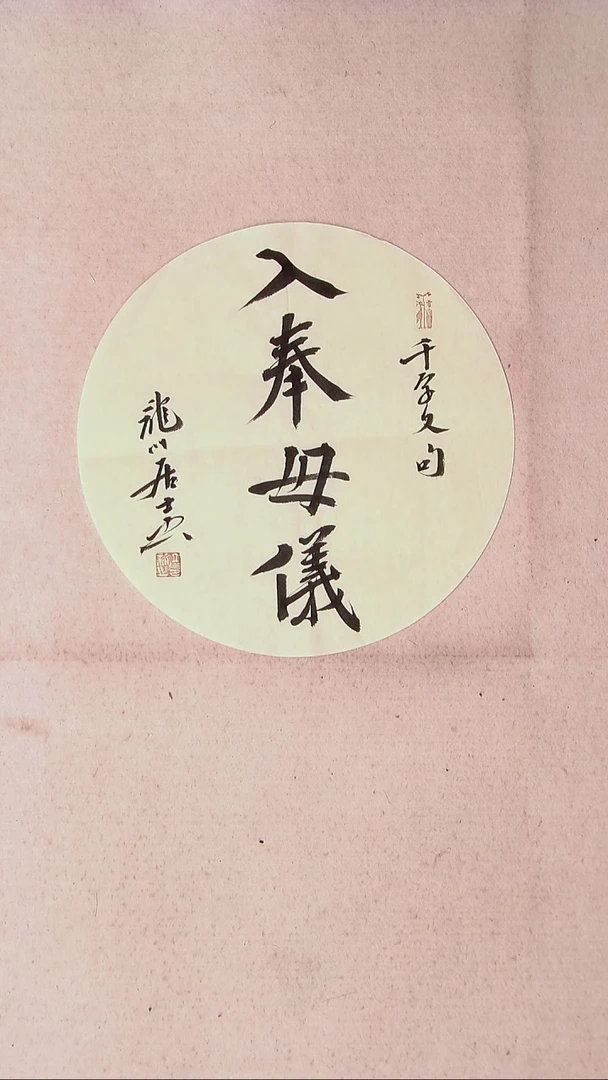 千字文句
入奉母儀
龍川居士